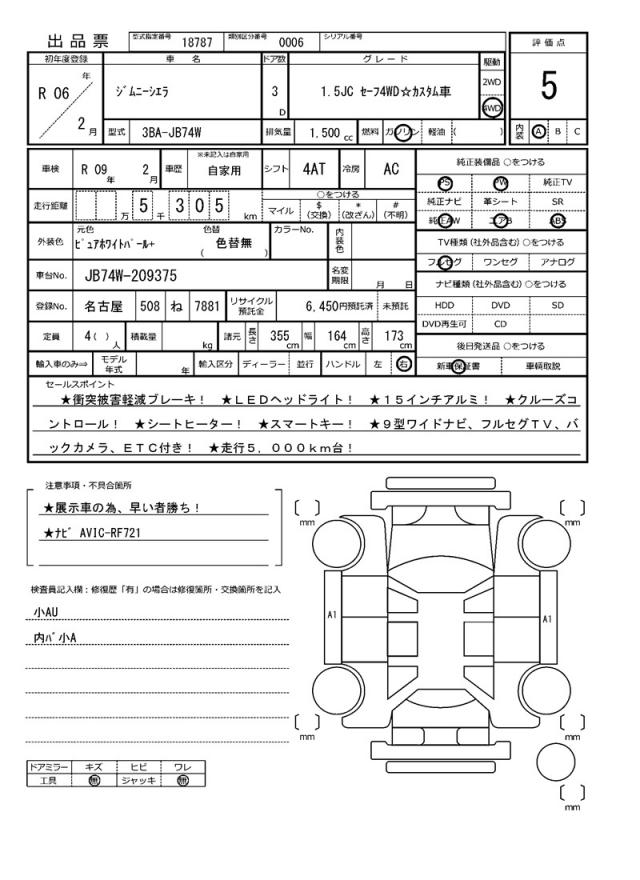 出品票 型式指定番号 18787 類別区分番号 0006 シリアル番号
評価点
5
内装 A B C
初年度登録 車名 ドア数 グレード 駆動
R 06 年 2 月
ジムニーシエラ 3 D 1.5JC セーフ4WD☆カスタム車 2WD 4WD
型式 3BA-JB74W 排気量 1.500 cc 燃料 ガソリン 軽油 ( )
車検 R 09 年 2 月 車歴 ※未記入は自家用 自家用 シフト 4AT 冷房 AC
走行距離 万 5 千 3 0 5 km
○をつける
マイル $(交換) *(改ざん) #(不明)
外装色 元色 ピュアホワイトパール+ 色替 ( 色替無 ) カラーNo. 内装色
車台No. JB74W-209375 名変期限 月 日
登録No. 名古屋 508 ね 7881 リサイクル預託金 6,450円預託済 未預託
定員 4( ) 人 積載量 kg 諸元 長さ 355 cm 幅 164 cm 高さ 173 cm
輸入車のみ⇒ モデル年式 年 輸入区分 ディーラー 並行 ハンドル 左 右
純正装備品 ○をつける
PS PW 純正TV
純正ナビ 革シート SR
純正AW エアB ABS
TV種類 (社外品含む) ○をつける
フルセグ ワンセグ アナログ
ナビ種類 (社外品含む) ○をつける
HDD DVD SD
DVD再生可 CD
後日発送品 ○をつける
新車保証書 車輌取説
セールスポイント
★衝突被害軽減ブレーキ! ★LEDヘッドライト! ★15インチアルミ! ★クルーズコ
ントロール! ★シートヒーター! ★スマートキー! ★9型ワイドナビ、フルセグTV、バ
ックカメラ、ETC付き! ★走行5,000km台!
注意事項・不具合箇所
★展示車の為、早い者勝ち!
★ナビ AVIC-RF721
検査員記入欄:修復歴「有」の場合は修復箇所・交換箇所を記入
小AU
内バ小A
ドアミラー キズ ヒビ ワレ
工具 無 ジャッキ 無
〔 〕 mm 〔 〕 mm
A1 A1
〔 〕 mm 〔 〕 mm
〔 〕 mm